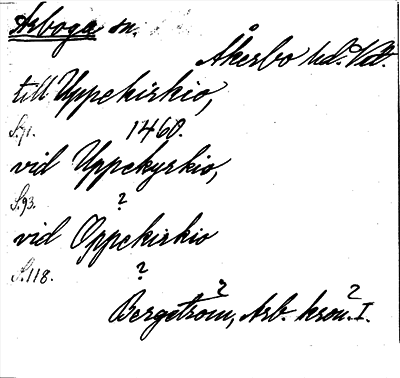 Arboga sn.
Åkerbo hd. Vstl.
till Uppekirkio,
S.71. 1460.
vid Uppekyrkio,
S.93. ?
vid Oppekirkio
S.118. ?
? ?
Bergström, Arb. krön. I.